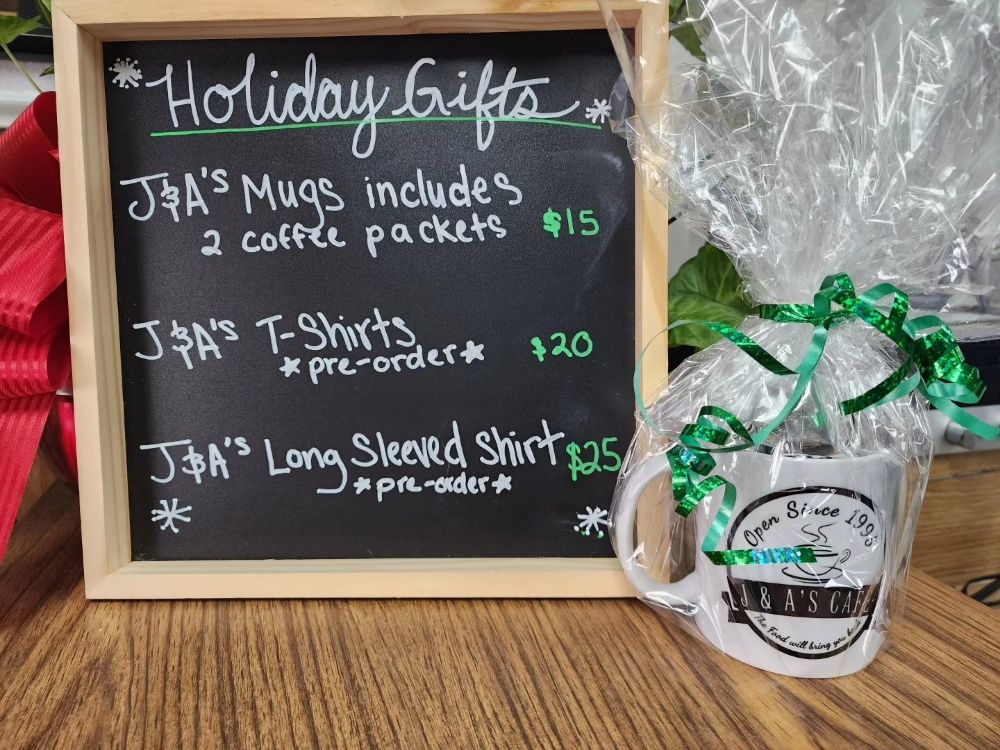 Holiday Gifts
J&A's Mugs includes
2 coffee packets $15
J&A's T-Shirts
*pre-order* $20
J&A's Long Sleeved Shirt $25
*pre-order*
Open Since 1995
J & A'S CAFE
The Food will bring you back